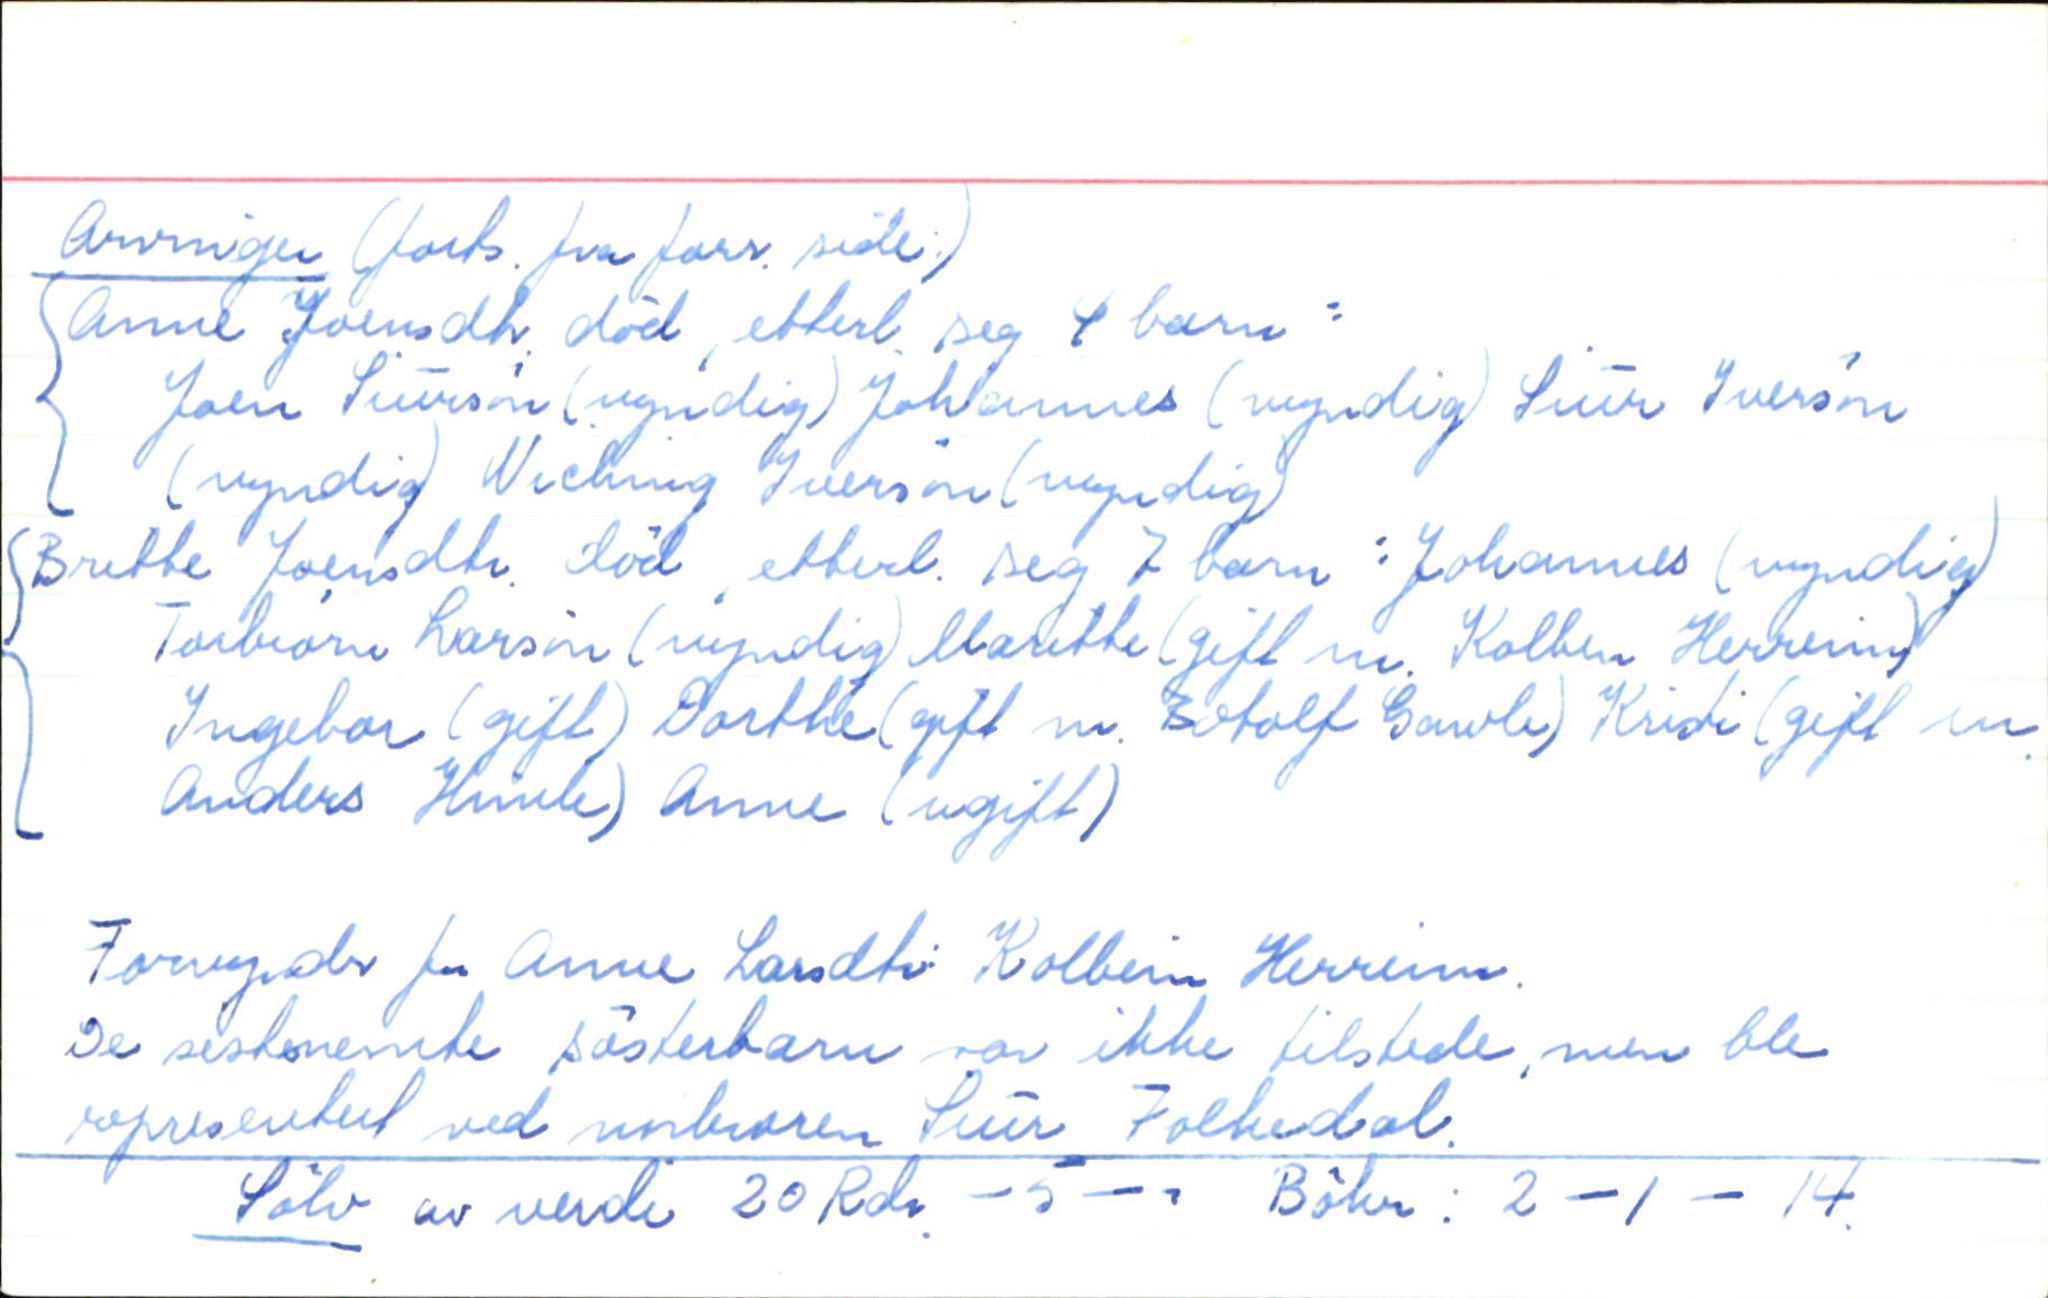 Arvinger (forts. fra forr. side:)
Anne Joensdtr. död, etterl. seg 4 barn:
Joen Siursön (myndig) Johannes (myndig) Siur Iversön
(myndig) Wiching Iversön (myndig)
Britthe Joensdtr. död, etterl. seg 7 barn: Johannes (myndig)
Torbiörn Larsön (myndig) Maritthe (gift m. Kolben Herreim)
Ingebor (gift) Dorthe (gift m. Botolf Gavle) Kristi (gift m.
Anders Himle) Anne (ugift)
Formynder for Anne Larsdtr: Kolbein Herreim.
De sistnevnte sösterbarn var ikke tilstede, men ble
representert ved morbroren Siur Folkedal.
Sölv av verdi 20 Rdr. - 5 - - Böker: 2 - 1 - 14.